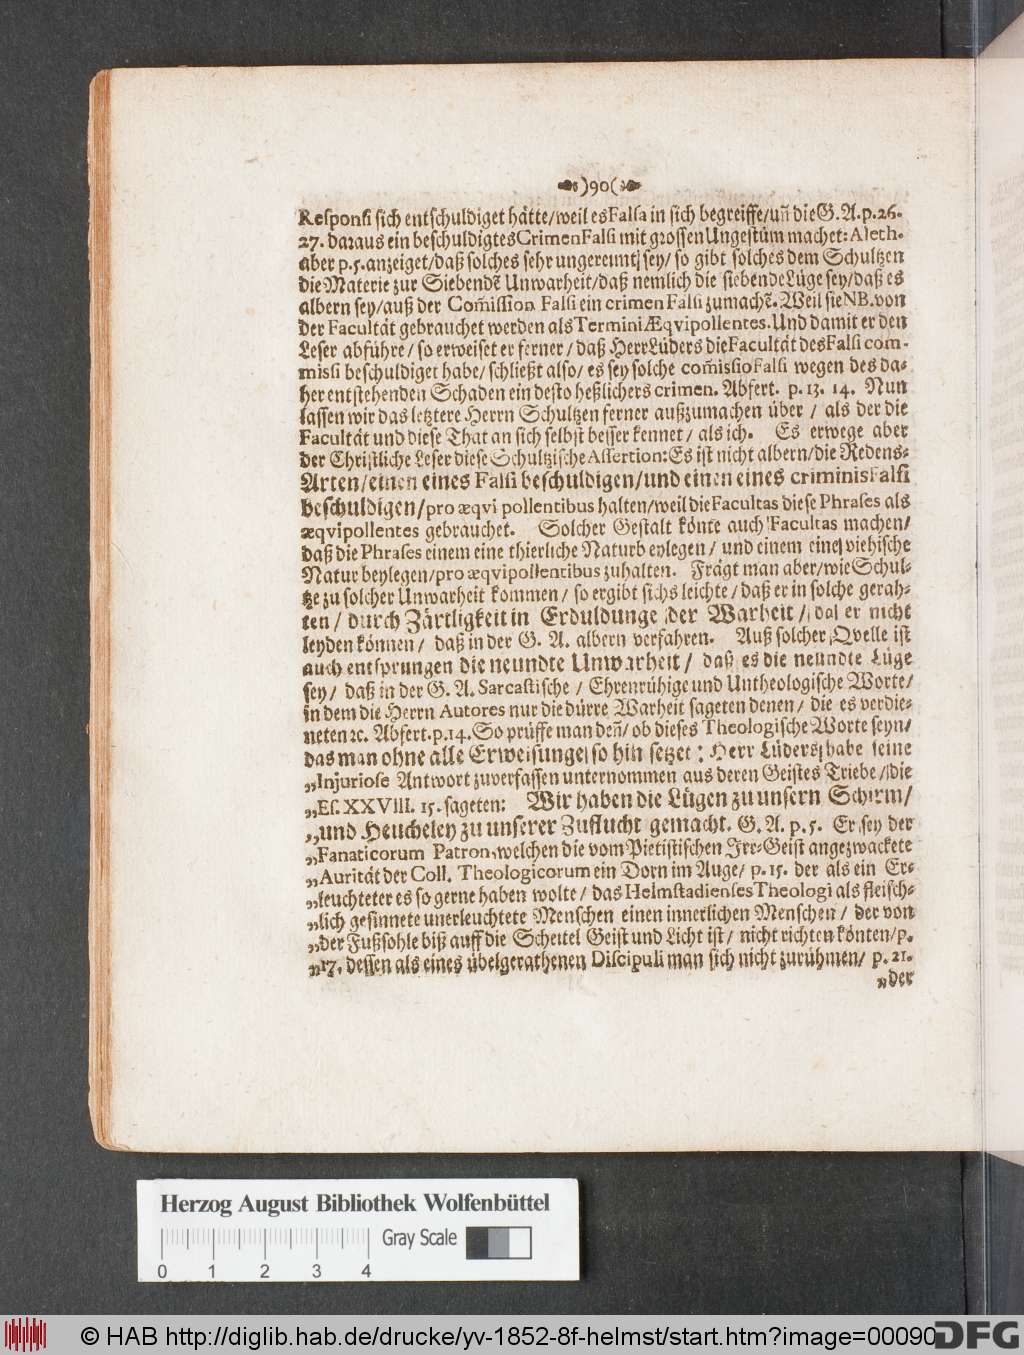 )90(
Responsi sich entschuldiget hätte/weil es Falsa in sich begreiffe/uñ die G. A. p. 26.
27. daraus ein beschuldigtes Crimen Falsi mit grossen Ungestüm machet: Aleth.
aber p. 5. anzeiget/daß solches sehr ungereimt sey/ so gibt solches dem Schultzen
die Materie zur Siebendẽ Unwarheit/daß nemlich die siebende Lüge sey/daß es
albern sey/auß der Com̃ission Falsi ein crimen Falsi zumachẽ. Weil sie NB. von
der Facultät gebrauchet werden als Termini Æqvipollentes. Und damit er den
Leser abführe/ so erweiset er ferner/ daß Herr Lüders die Facultät des Falsi com-
missi beschuldiget habe/schließt also/ es sey solche com̃issio Falsi wegen des da-
her entstehenden Schaden ein desto heßlichers crimen. Abfert. p. 13. 14. Nun
lassen wir das letztere Herrn Schultzen ferner außzumachen über / als der die
Facultät und diese That an sich selbst besser kennet/ als ich. Es erwege aber
der Christliche Leser diese Schultzische Assertion: Es ist nicht albern/die Redens-
Arten/einen eines Falsi beschuldigen/und einen eines criminis Falsi
beschuldigen/pro æqvi pollentibus halten/weil die Facultas diese Phrases als
æqvipollentes gebrauchet. Solcher Gestalt könte auch Facultas machen/
daß die Phrases einem eine thierliche Natur beylegen/ und einem eine viehische
Natur beylegen/pro æqvipollentibus zuhalten. Frägt man aber/wie Schul-
tze zu solcher Unwarheit kommen/ so ergibt sichs leichte/ daß er in solche gerah-
ten/ durch Zärtligkeit in Erduldunge der Warheit/ da er nicht
leyden können/ daß in der G. A. albern verfahren. Auß solcher Qvelle ist
auch entsprungen die neundte Unwarheit/ daß es die neundte Lüge
sey/ daß in der G. A. Sarcastische / Ehrenrühige und Untheologische Worte/
in dem die Herrn Autores nur die dürre Warheit sageten denen/ die es verdie-
neten ꝛc. Abfert. p. 14. So prüffe man deñ/ ob dieses Theologische Worte seyn/
das man ohne alle Erweisunge so hin setzet: Herr Lüders habe seine
„Injuriose Antwort zuverfassen unternommen aus deren Geistes Triebe/ die
„Es. XXVIII. 15. sageten: Wir haben die Lügen zu unsern Schirm/
„und Heucheley zu unserer Zuflucht gemacht. G. A. p. 5. Er sey der
„Fanaticorum Patron, welchen die vom Pietistischen Irr-Geist angezwackete
„Aurität der Coll. Theologicorum ein Dorn im Auge/ p. 15. der als ein Er-
„leuchteter es so gerne haben wolte/ das Helmstadienses Theologi als fleisch-
„lich gesinnete unerleuchtete Menschen einen innerlichen Menschen/ der von
„der Fußsohle biß auff die Scheitel Geist und Licht ist/ nicht richten könten/p.
„17. dessen als eines übelgerathenen Discipuli man sich nicht zurühmen/ p. 21.
„der
Herzog August Bibliothek Wolfenbüttel
Gray Scale
0 1 2 3 4
© HAB http://diglib.hab.de/drucke/yv-1852-8f-helmst/start.htm?image=00090
DFG